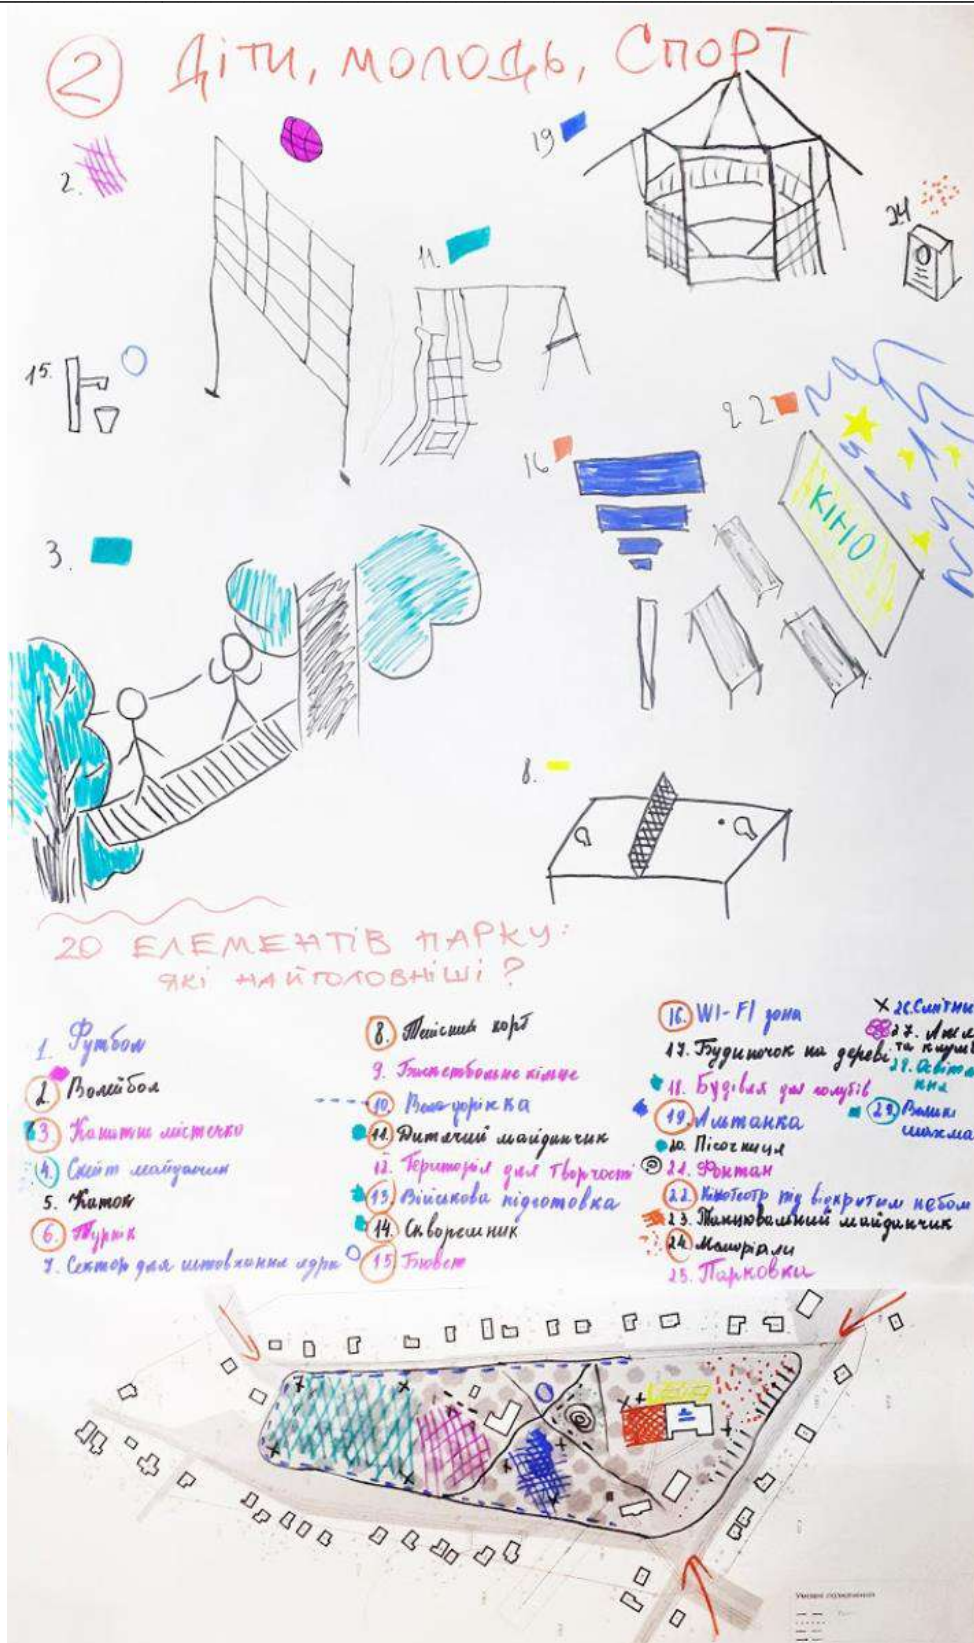 2 Діти, молодь, Спорт
2.
19
24
11
15.
22
16
КІНО
3.
8.
20 ЕЛЕМЕНТІВ ПАРКУ:
ЯКІ НАЙГОЛОВНІШІ?
1. Футбол
2. Волейбол
3. Канатне містечко
4. Скейт майданчик
5. Каток
6. Турнік
7. Сектор для штовхання ядра
8. Тенісний корт
9. Баскетбольне кільце
10. Вело доріжка
11. Дитячий майданчик
12. Територія для творчості
13. Військова підготовка
14. Скворешник
15. Бювет
16. WI-FI зона
17. Будиночок на дереві
18. Будівля для голубів
19. Альтанка
20. Пісочниця
21. Фонтан
22. Кінотеатр під відкритим небом
23. Танцювальний майданчик
24. Меморіали
25. Парковки
26.
27.
та клумб
28. Освітле
ння
29. Великі
шахма
Умовні позначення